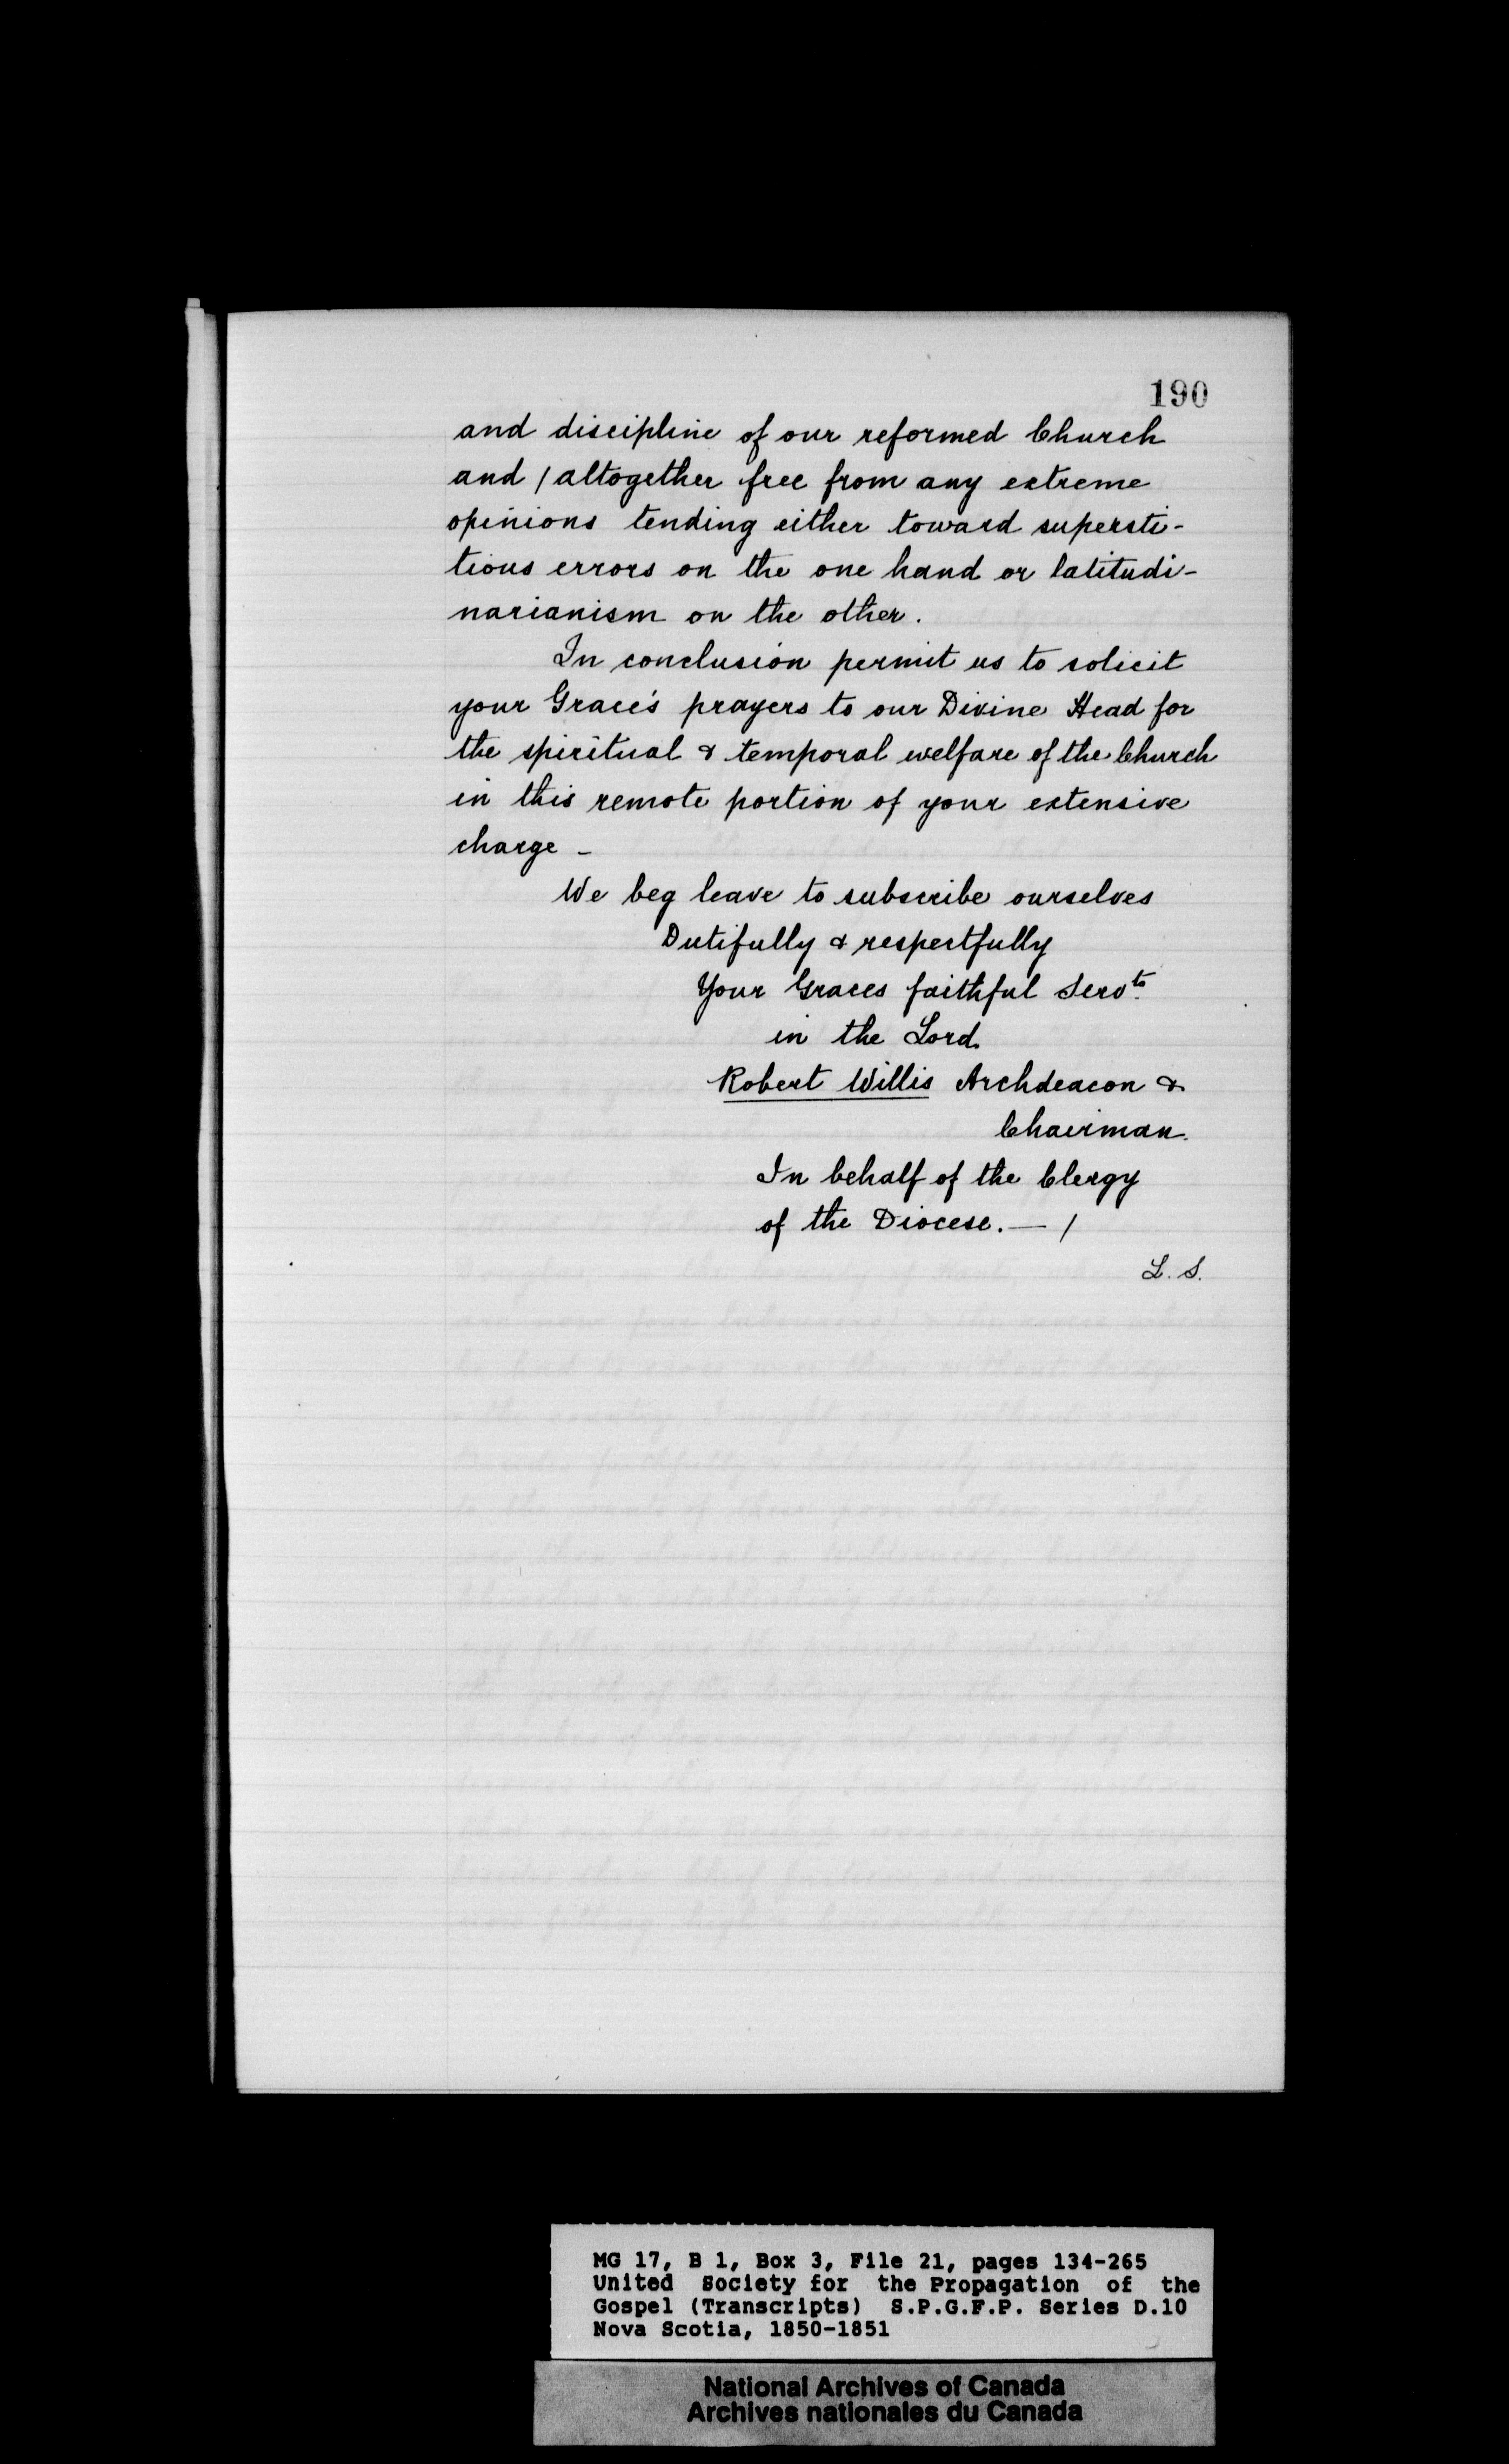 190
and discipline of our reformed Church
and / altogether free from any extreme
opinions tending either toward supersti-
tious errors on the one hand or latitudi-
narianism on the other.
In conclusion permit us to solicit
your Grace's prayers to our Divine Head for
the spiritual & temporal welfare of the Church
in this remote portion of your extensive
charge -
We beg leave to subscribe ourselves
Dutifully & respectfully
Your Graces faithful Servts.
in the Lord.
Robert Willis Archdeacon &
Chairman.
In behalf of the Clergy
of the Diocese. — /
L. S.
MG 17, B 1, Box 3, File 21, pages 134-265
United Society for the Propagation of the
Gospel (Transcripts) S.P.G.F.P. Series D.10
Nova Scotia, 1850-1851
National Archives of Canada
Archives nationales du Canada